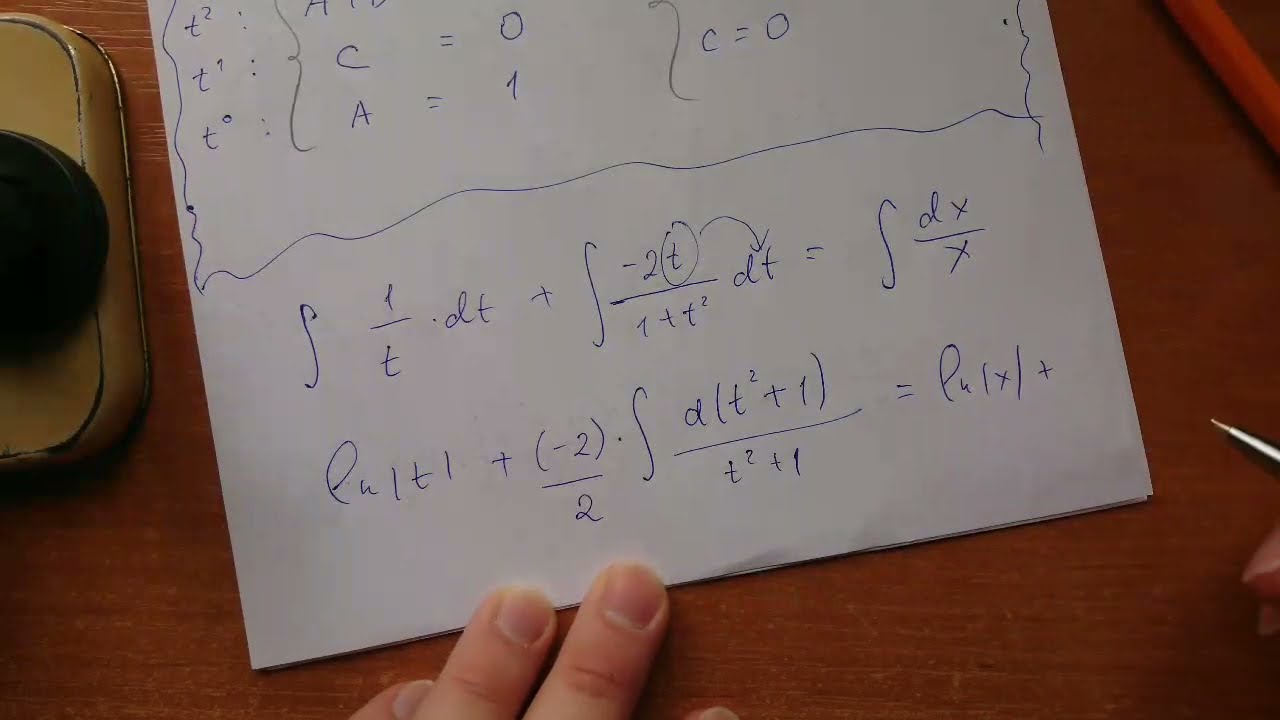 t² :
t¹ : C = 0
C = 0
t⁰ : A = 1
∫ 1/t · dt + ∫ -2t/(1+t²) dt = ∫ dx/x
ln|t| + (-2)/2 · ∫ d(t²+1)/(t²+1) = ln|x| +